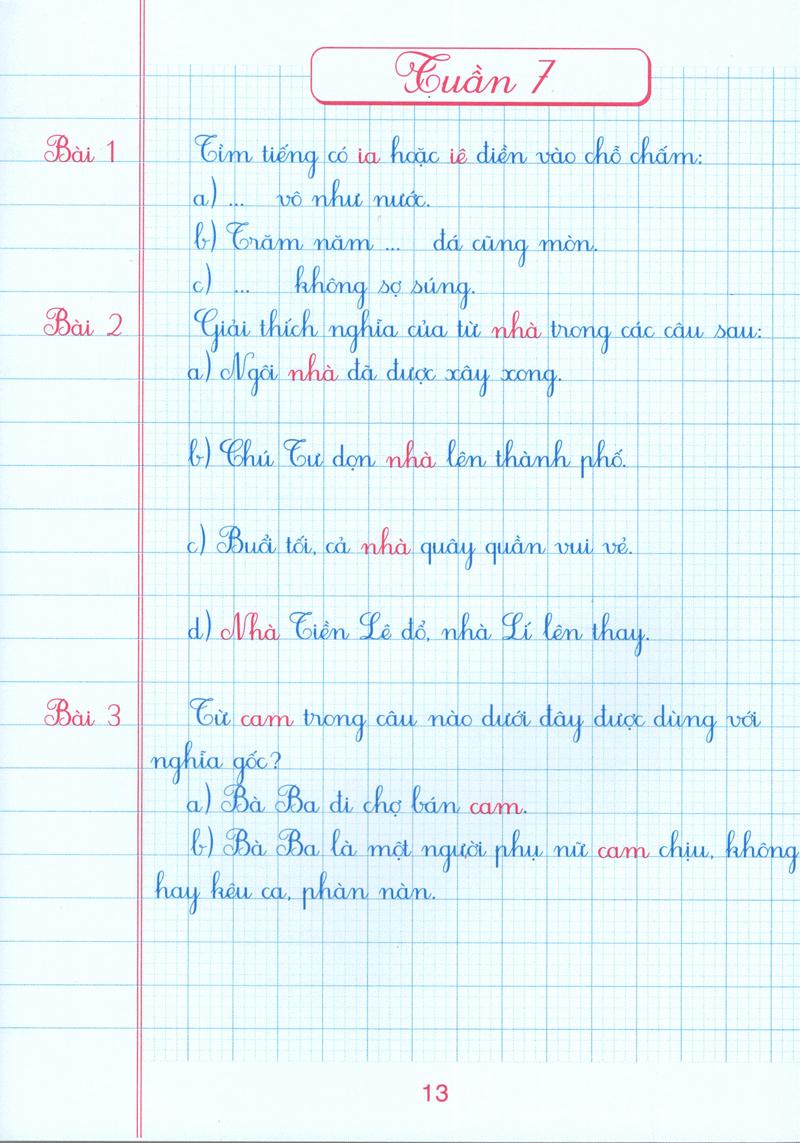 Tuần 7
Bài 1 Tìm tiếng có ia hoặc iê điền vào chỗ chấm:
a) ... vô như nước.
b) Trăm năm ... đá cũng mòn.
c) ... không sợ súng.
Bài 2 Giải thích nghĩa của từ nhà trong các câu sau:
a) Ngôi nhà đã được xây xong.
b) Chú Tư dọn nhà lên thành phố.
c) Buổi tối, cả nhà quây quần vui vẻ.
d) Nhà Tiền Lê đổ, nhà Lí lên thay.
Bài 3 Từ cam trong câu nào dưới đây được dùng với
nghĩa gốc?
a) Bà Ba đi chợ bán cam.
b) Bà Ba là một người phụ nữ cam chịu, không
hay kêu ca, phàn nàn.
13